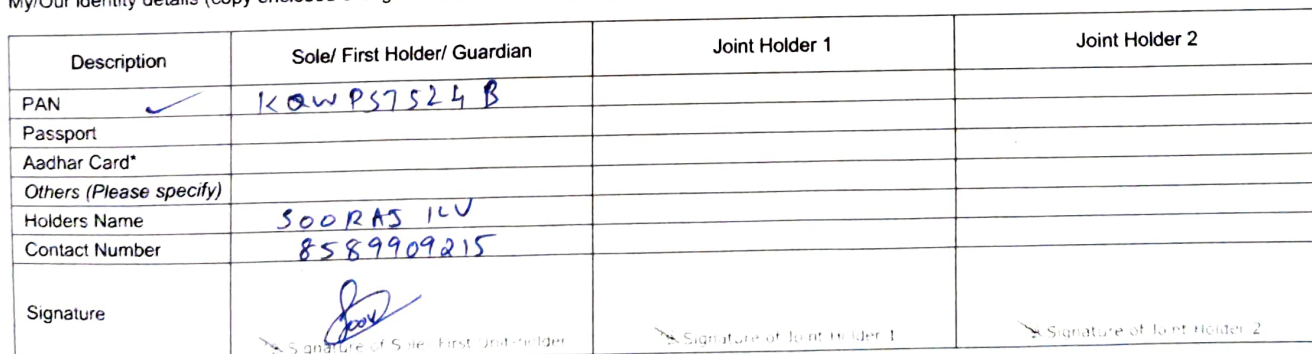 My/Our identity details (copy enclosed
Description Sole/ First Holder/ Guardian Joint Holder 1 Joint Holder 2
PAN KQWPS7524B
Passport
Aadhar Card*
Others (Please specify)
Holders Name SOORAJ KV
Contact Number 8589909215
Signature
Signature of Sole/ First Unit-holder Signature of Joint Holder 1 Signature of Joint Holder 2